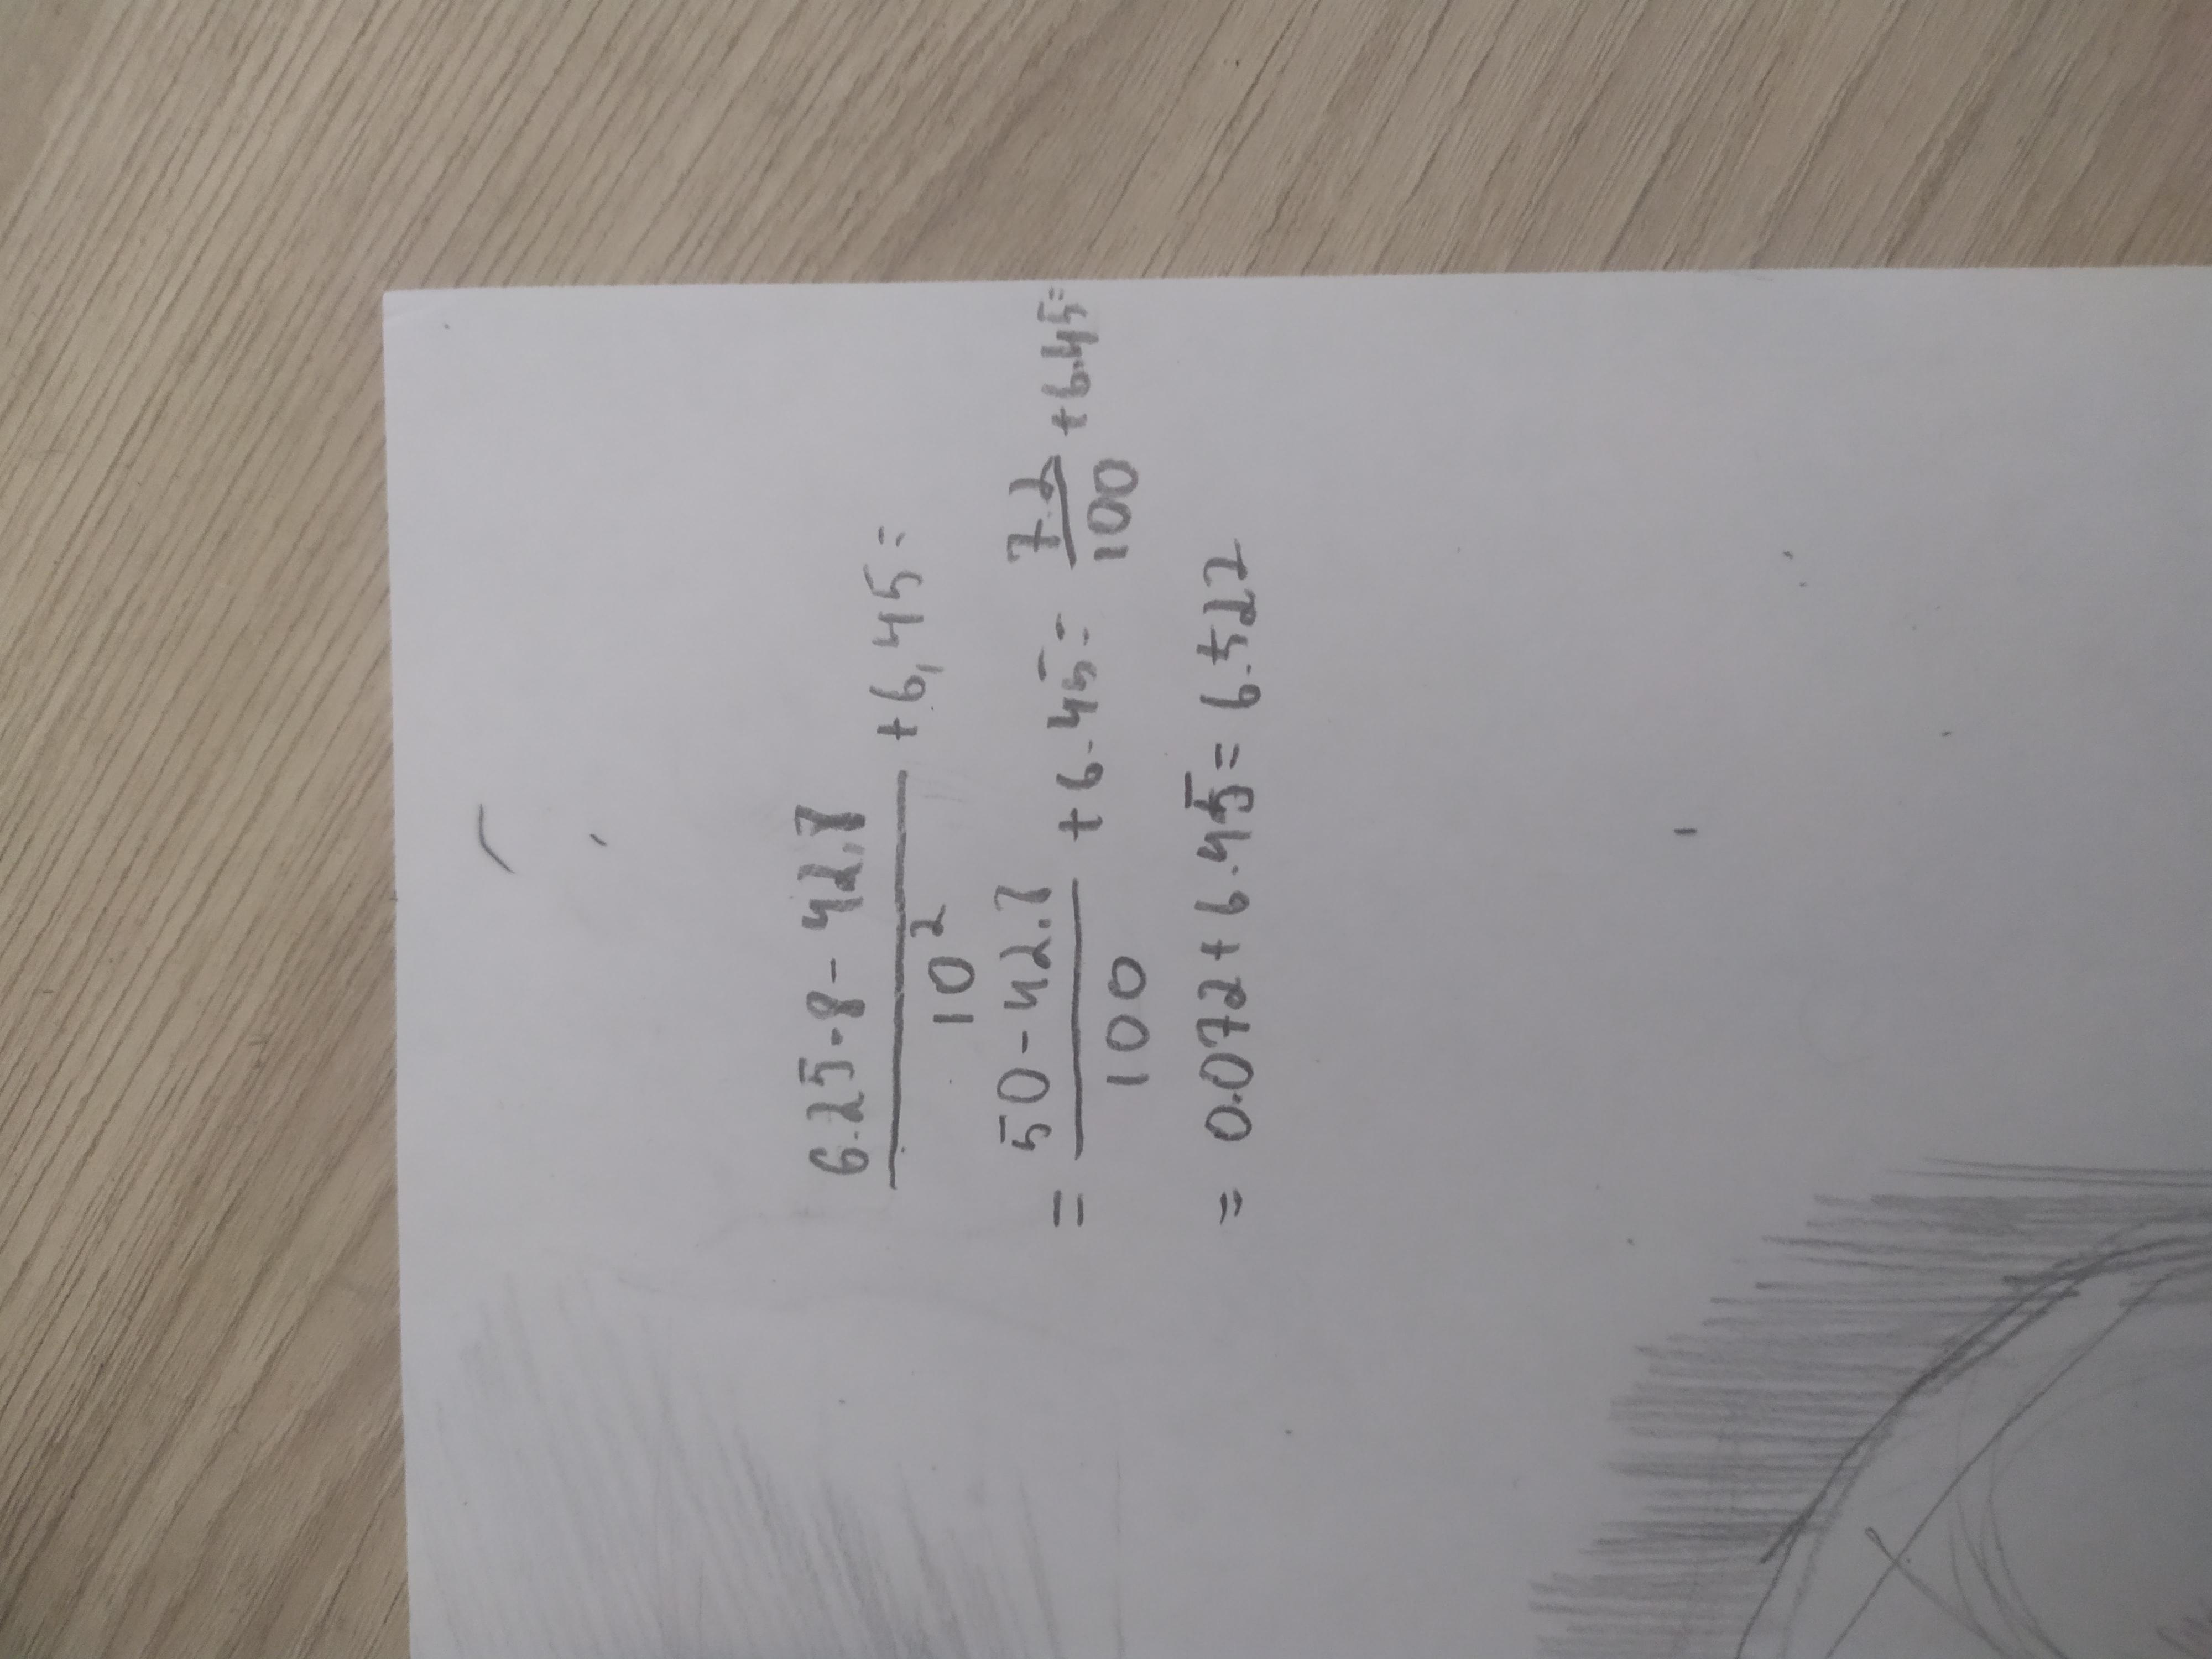 6.25·8-42.8
+6,45=
10²
=
50-42.8
+6.45=
7.2
+6.45=
100
100
=0.072+6.45=6.522